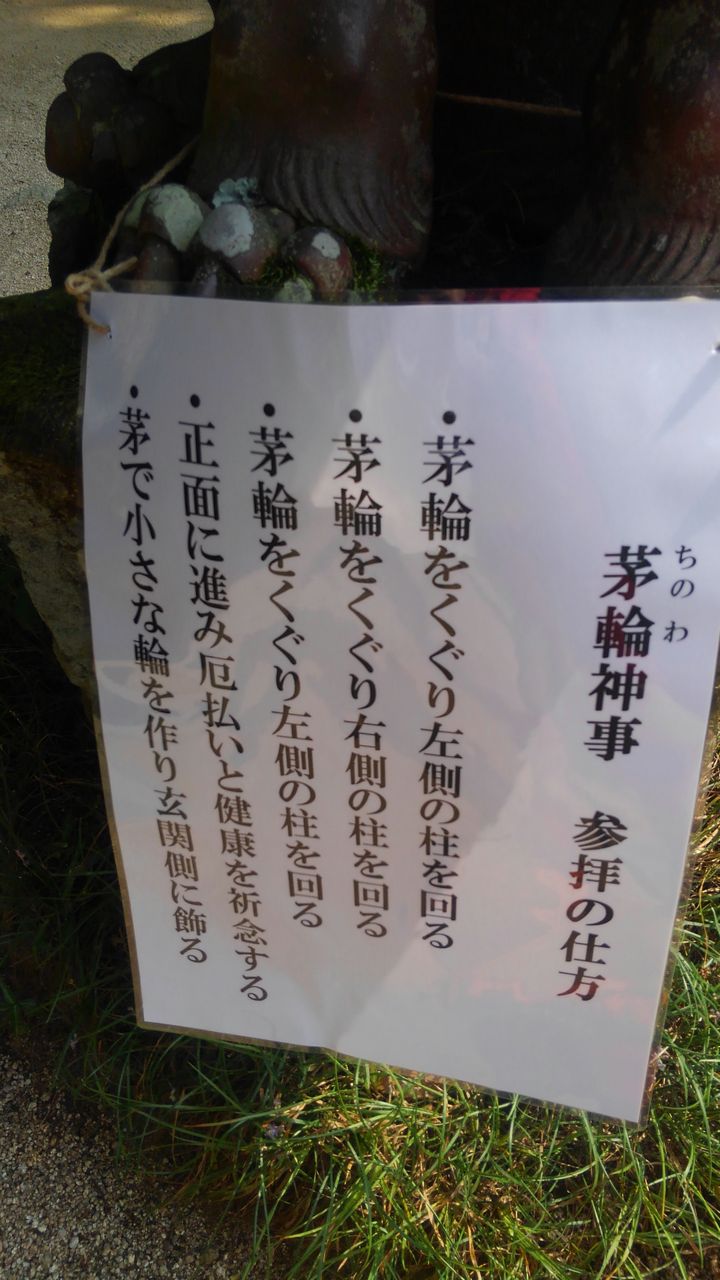 茅輪神事　参拝の仕方
ちのわ
・茅輪をくぐり左側の柱を回る
・茅輪をくぐり右側の柱を回る
・茅輪をくぐり左側の柱を回る
・正面に進み厄払いと健康を祈念する
・茅で小さな輪を作り玄関側に飾る